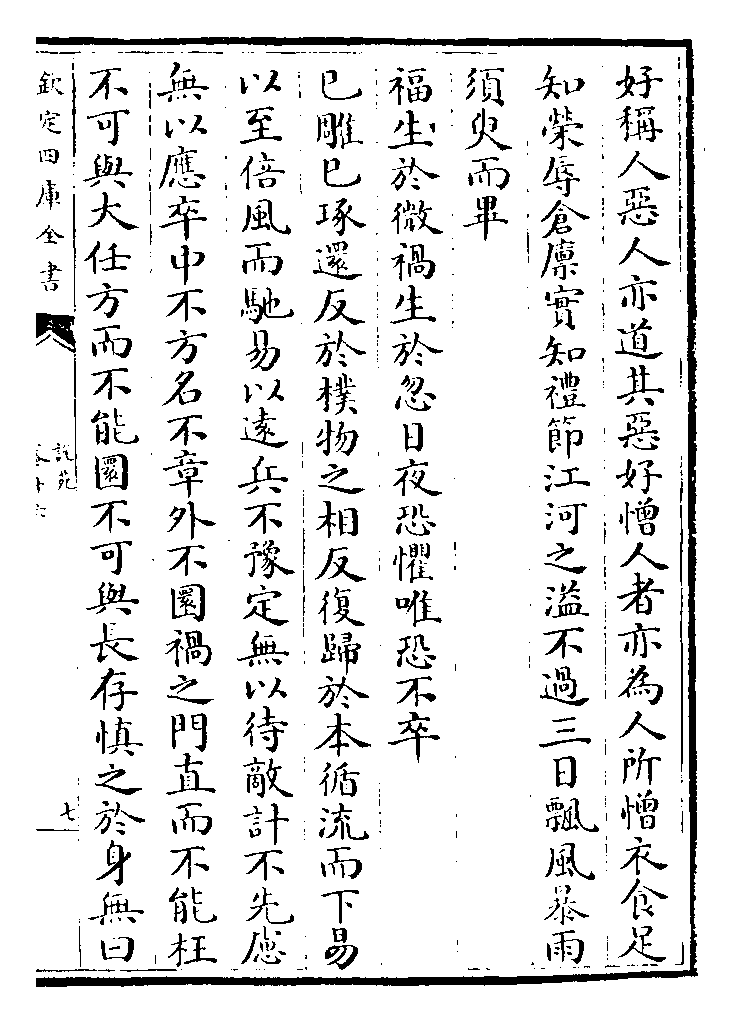 好稱人惡人亦道其惡好憎人者亦為人所憎衣食足
知榮辱倉廪實知禮節江河之溢不過三日飄風暴雨
須臾而畢
福生於微禍生於忽日夜恐懼唯恐不卒
已雕已琢還反於樸物之相反復歸於本循流而下易
以至倍風而馳易以逺兵不豫定無以待敵計不先慮
無以應卒中不方名不章外不圜禍之門直而不能枉
不可與大任方而不能圜不可與長存慎之於身無曰
欽定四庫全書
說苑
卷十六
七